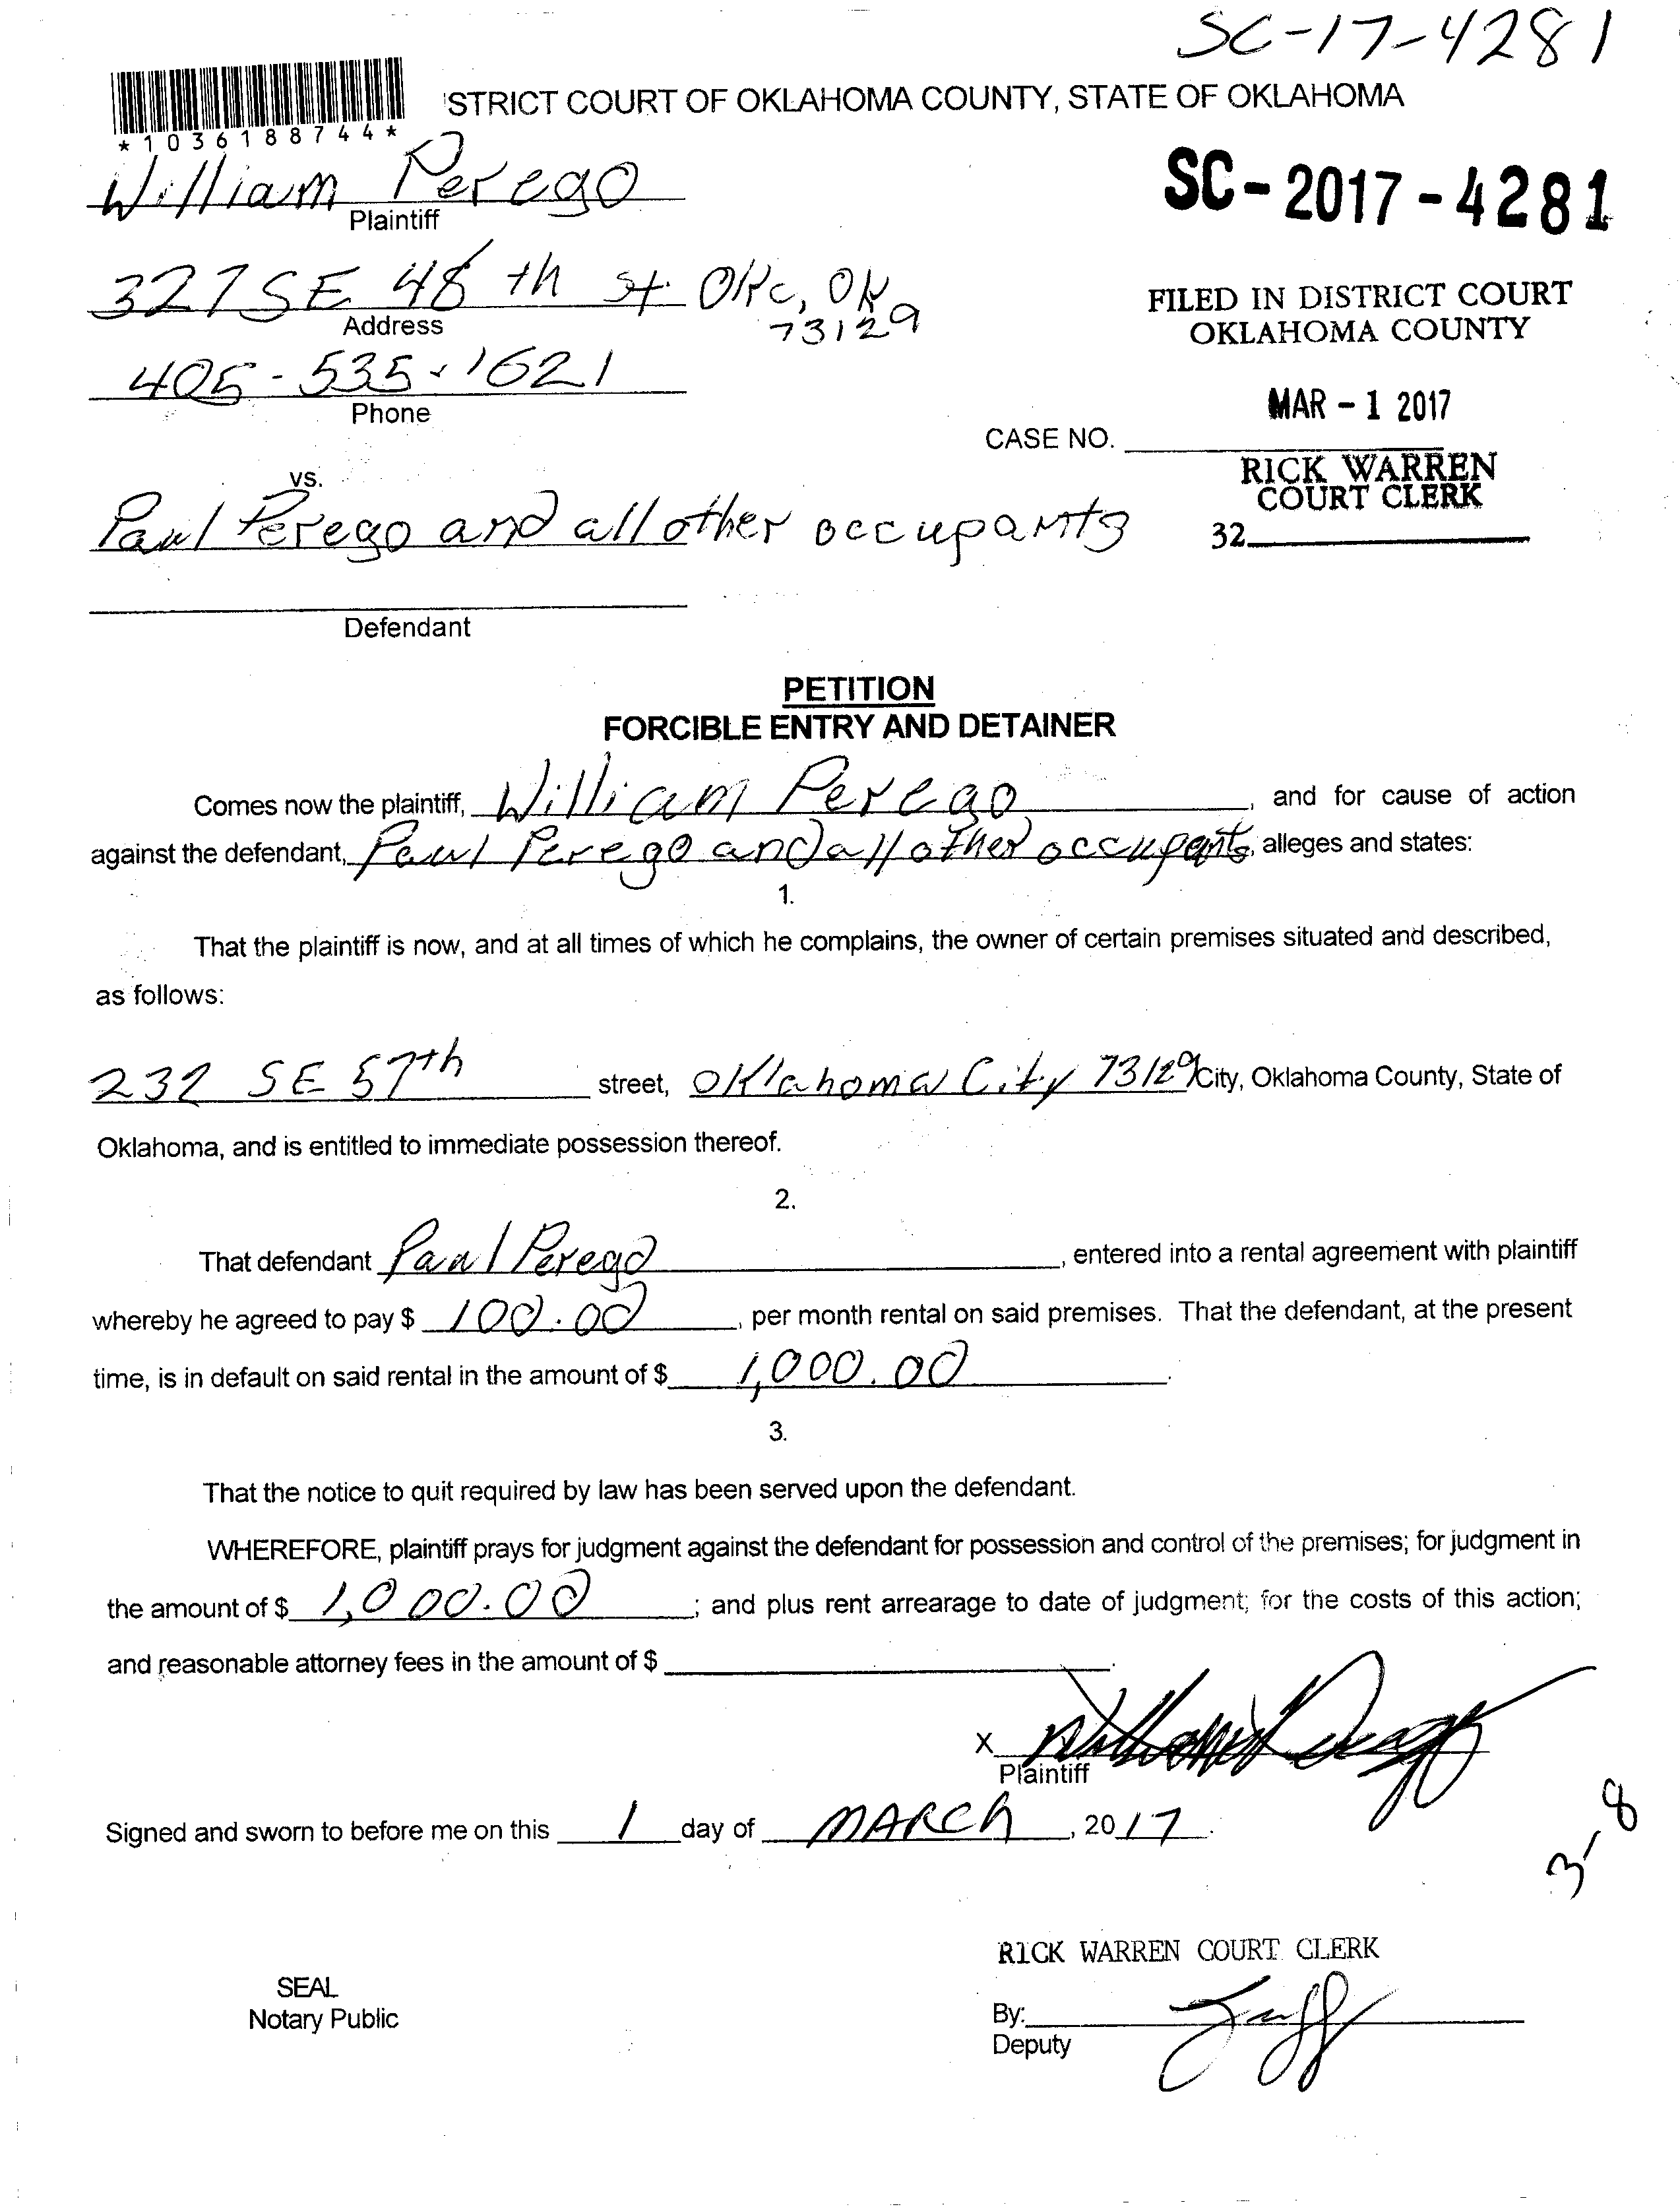 SC-17-4281
STRICT COURT OF OKLAHOMA COUNTY, STATE OF OKLAHOMA
*1036188744*
William Perego
Plaintiff
SC-2017-4281
327 SE 48th St. OKC, OK
73129
Address
FILED IN DISTRICT COURT
OKLAHOMA COUNTY
405-535-1621
Phone
MAR - 1 2017
CASE NO.
RICK WARREN
COURT CLERK
32
vs.
Paul Perego and all other occupants
Defendant
PETITION
FORCIBLE ENTRY AND DETAINER
Comes now the plaintiff, William Perego, and for cause of action
against the defendant, Paul Perego and all other occupants, alleges and states:
1.
That the plaintiff is now, and at all times of which he complains, the owner of certain premises situated and described,
as follows:
232 SE 57th street, Oklahoma City 73129 City, Oklahoma County, State of
Oklahoma, and is entitled to immediate possession thereof.
2.
That defendant Paul Perego, entered into a rental agreement with plaintiff
whereby he agreed to pay $ 100.00, per month rental on said premises. That the defendant, at the present
time, is in default on said rental in the amount of $ 1,000.00.
3.
That the notice to quit required by law has been served upon the defendant.
WHEREFORE, plaintiff prays for judgment against the defendant for possession and control of the premises; for judgment in
the amount of $ 1,000.00; and plus rent arrearage to date of judgment; for the costs of this action;
and reasonable attorney fees in the amount of $ .
X
Plaintiff
Signed and sworn to before me on this 1 day of MARCH, 2017.
3-8
RICK WARREN COURT CLERK
SEAL
Notary Public
By:
Deputy